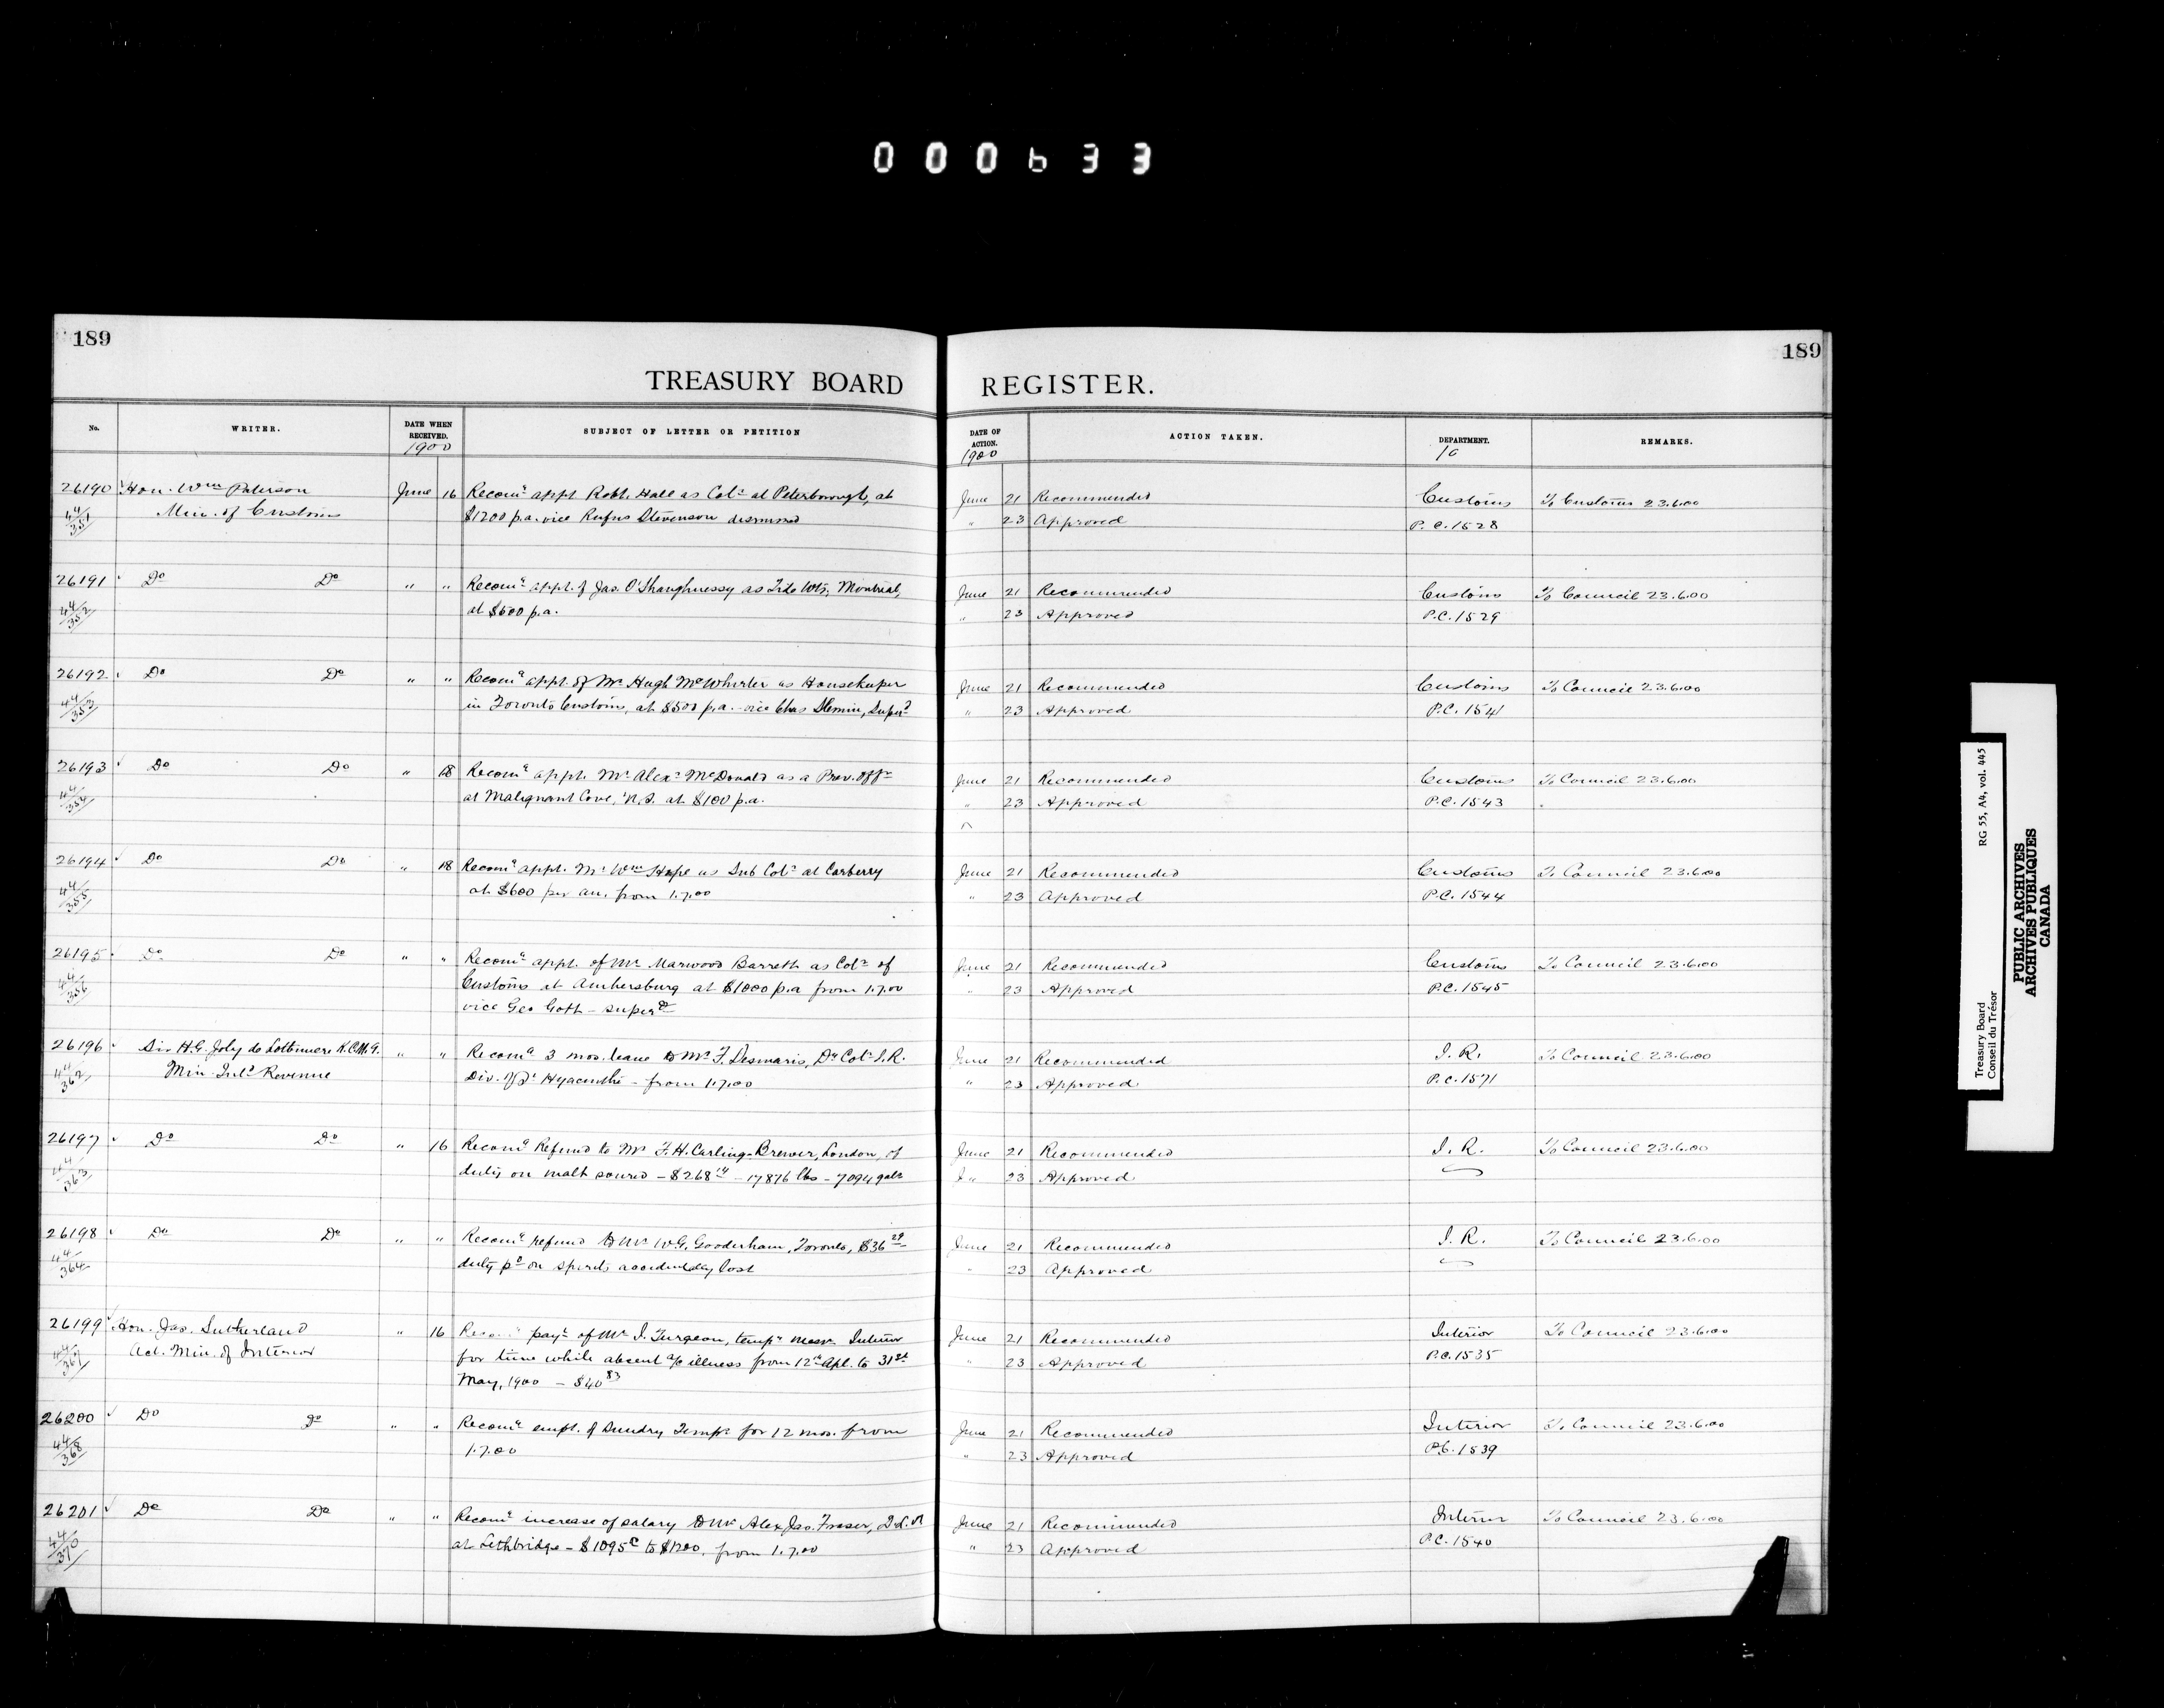 000633
189
189
TREASURY BOARD REGISTER.
No. WRITER. DATE WHEN RECEIVED. SUBJECT OF LETTER OR PETITION DATE OF ACTION. ACTION TAKEN. DEPARTMENT. REMARKS.
1900 1900 10
26190 Hon. Wm Paterson June 16 Recomg appt Robt. Hall as Colr at Peterborough, at June 21 Recommended Customs To Customs 23.6.00
44/351 Min. of Customs $1200 p.a. vice Rufus Stevenson dismissed " 23 Approved P.C. 1528
26191 Do Do " " Recomg appt. of Jas. O'Shaughnessy as Tide Wtr, Montreal, June 21 Recommended Customs To Council 23.6.00
44/352 at $600 p.a. " 23 Approved P.C. 1529
26192 Do Do " " Recomg appt. of Mr Hugh McWhirter as Housekeeper June 21 Recommended Customs To Council 23.6.00
44/353 in Toronto Customs, at $500 p.a. - vice Chas Slemin, Supd " 23 Approved P.C. 1541
26193 Do Do " 18 Recomg appt. Mr Alexr McDonald as a Prev. Offr June 21 Recommended Customs To Council 23.6.00
44/354 at Malignant Cove, N.S. at $100 p.a. " 23 Approved P.C. 1543
26194 Do Do " 18 Recomg appt. Mr Wm Hope as Sub Colr at Carberry June 21 Recommended Customs To Council 23.6.00
44/355 at $600 per an. from 1.7.00 " 23 Approved P.C. 1544
26195 Do Do " " Recomg appt. of Mr Marwood Barrett as Colr of June 21 Recommended Customs To Council 23.6.00
44/356 Customs at Amhersburg at $1000 p.a from 1.7.00 " 23 Approved P.C. 1545
vice Geo Gott - superd
26196 Sir H.G. Joly de Lotbiniere K.C.M.G. " " Recomg 3 mos. leave to Mr F. Desmaris, Dy Colr I.R. June 21 Recommended I.R. To Council 23.6.00
44/362 Min. Inld Revenue Div. of St Hyacinthe - from 1.7.00 " 23 Approved P.C. 1571
26197 Do Do " 16 Recomg Refund to Mr F.H. Carling - Brewer, London, of June 21 Recommended I.R. To Council 23.6.00
44/363 duty on malt soured - $268 14 - 17876 lbs - 7094 gals " 23 Approved
26198 Do Do " " Recomg refund to Mr W.G. Gooderham, Toronto, $36 29 June 21 Recommended I.R. To Council 23.6.00
44/364 duty pd on spirits accidentally lost " 23 Approved
26199 Hon. Jas. Sutherland " 16 Recomg payt of Mr I. Turgeon, tempy messr Interior June 21 Recommended Interior To Council 23.6.00
44/367 Act. Min. of Interior for time while absent a/c illness from 12th Apl. to 31st " 23 Approved P.C. 1535
May, 1900 - $40 83
26200 Do Do " " Recomg empt. of Sundry Tempy for 12 mos. from June 21 Recommended Interior To Council 23.6.00
44/368 1.7.00 " 23 Approved P.C. 1539
26201 Do Do " " Recomg increase of salary to Mr Alex Jas. Fraser, at June 21 Recommended Interior To Council 23.6.00
44/370 at Lethbridge - $1095 to $1200. from 1.7.00 " 23 Approved P.C. 1540
Treasury Board RG 55, A4, vol. 445
Conseil du Trésor
PUBLIC ARCHIVES
ARCHIVES PUBLIQUES
CANADA